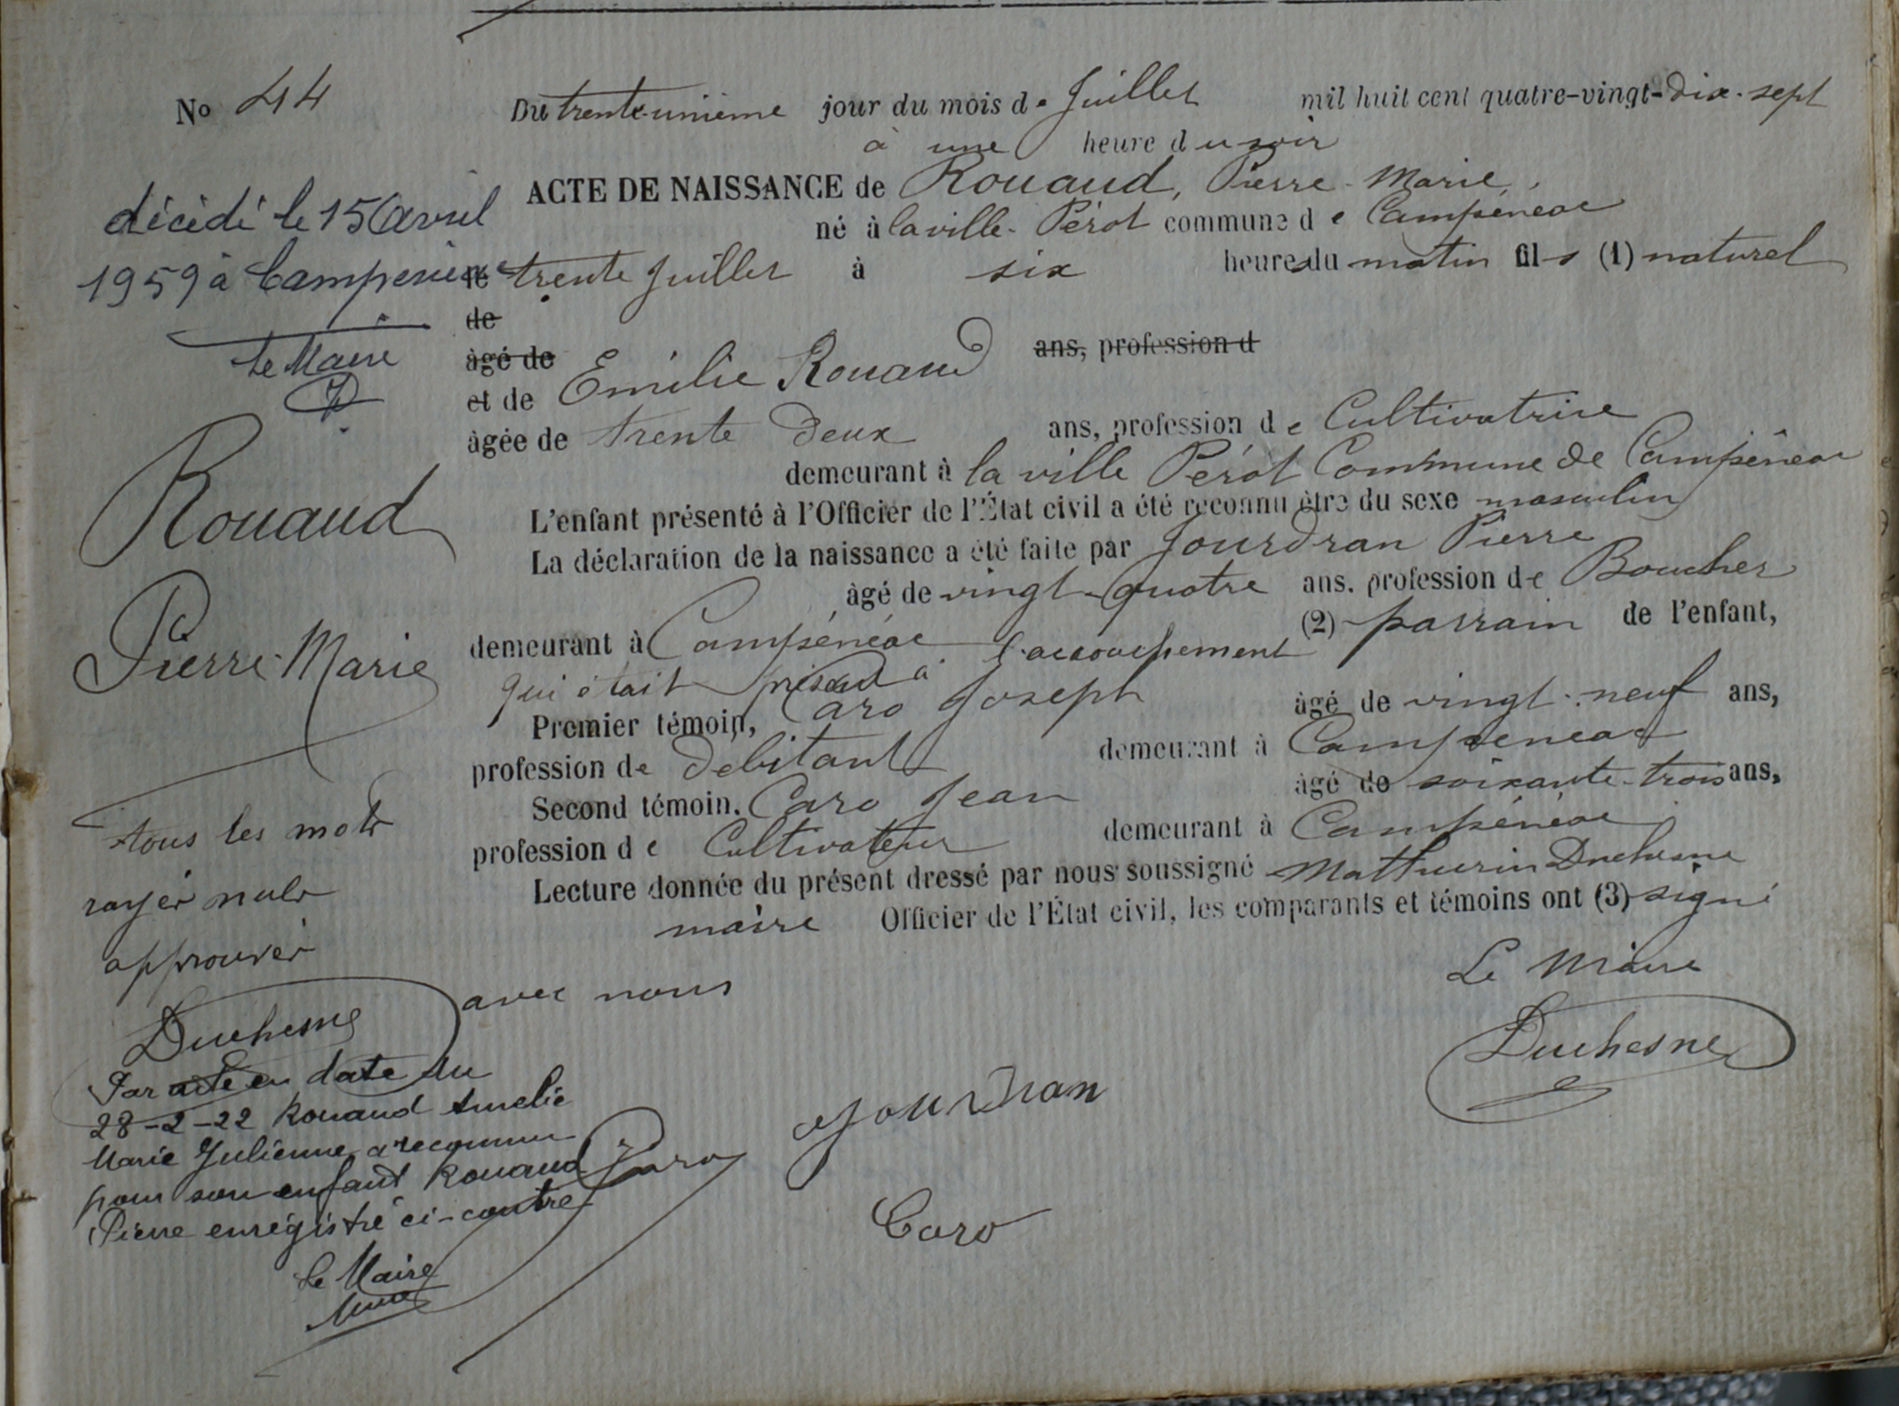 No 44
Du trente-unième jour du mois de Juillet mil huit cent quatre-vingt-dix-sept
à une heure du soir
ACTE DE NAISSANCE de Rouaud, Pierre-Marie,
né à la ville-Pérot commune de Campénéac
le trente Juillet à six heures du matin fils (1) naturel
de
âgé de ans, profession d
et de Emilie Rouaud
âgée de trente deux ans, profession de Cultivatrice
demeurant à la ville Pérot Commune de Campénéac
L'enfant présenté à l'Officier de l'État civil a été reconnu être du sexe masculin
La déclaration de la naissance a été faite par Jourdran Pierre
âgé de vingt-quatre ans, profession de Boucher
demeurant à Campénéac (2) parrain de l'enfant,
qui était présent à l'accouchement
Premier témoin, Caro Joseph âgé de vingt-neuf ans,
profession de débitant demeurant à Campénéac
Second témoin, Caro Jean âgé de soixante-trois ans,
profession de Cultivateur demeurant à Campénéac
Lecture donnée du présent dressé par nous soussigné Mathurin Duchesne
maire Officier de l'État civil, les comparants et témoins ont (3) signé
avec nous
Le Maire
Duchesne
Jourdran
Caro
Caro
décédé le 15 Avril
1959 à Campénéac
Le Maire
Rouaud
Pierre-Marie
tous les mots
rayés nuls
approuvés
Duchesne
Par acte en date du
28-2-22 Rouaud Amelie
Marie Julienne a reconnu
pour son enfant Rouaud
Pierre enregistré ci-contre
Le Maire